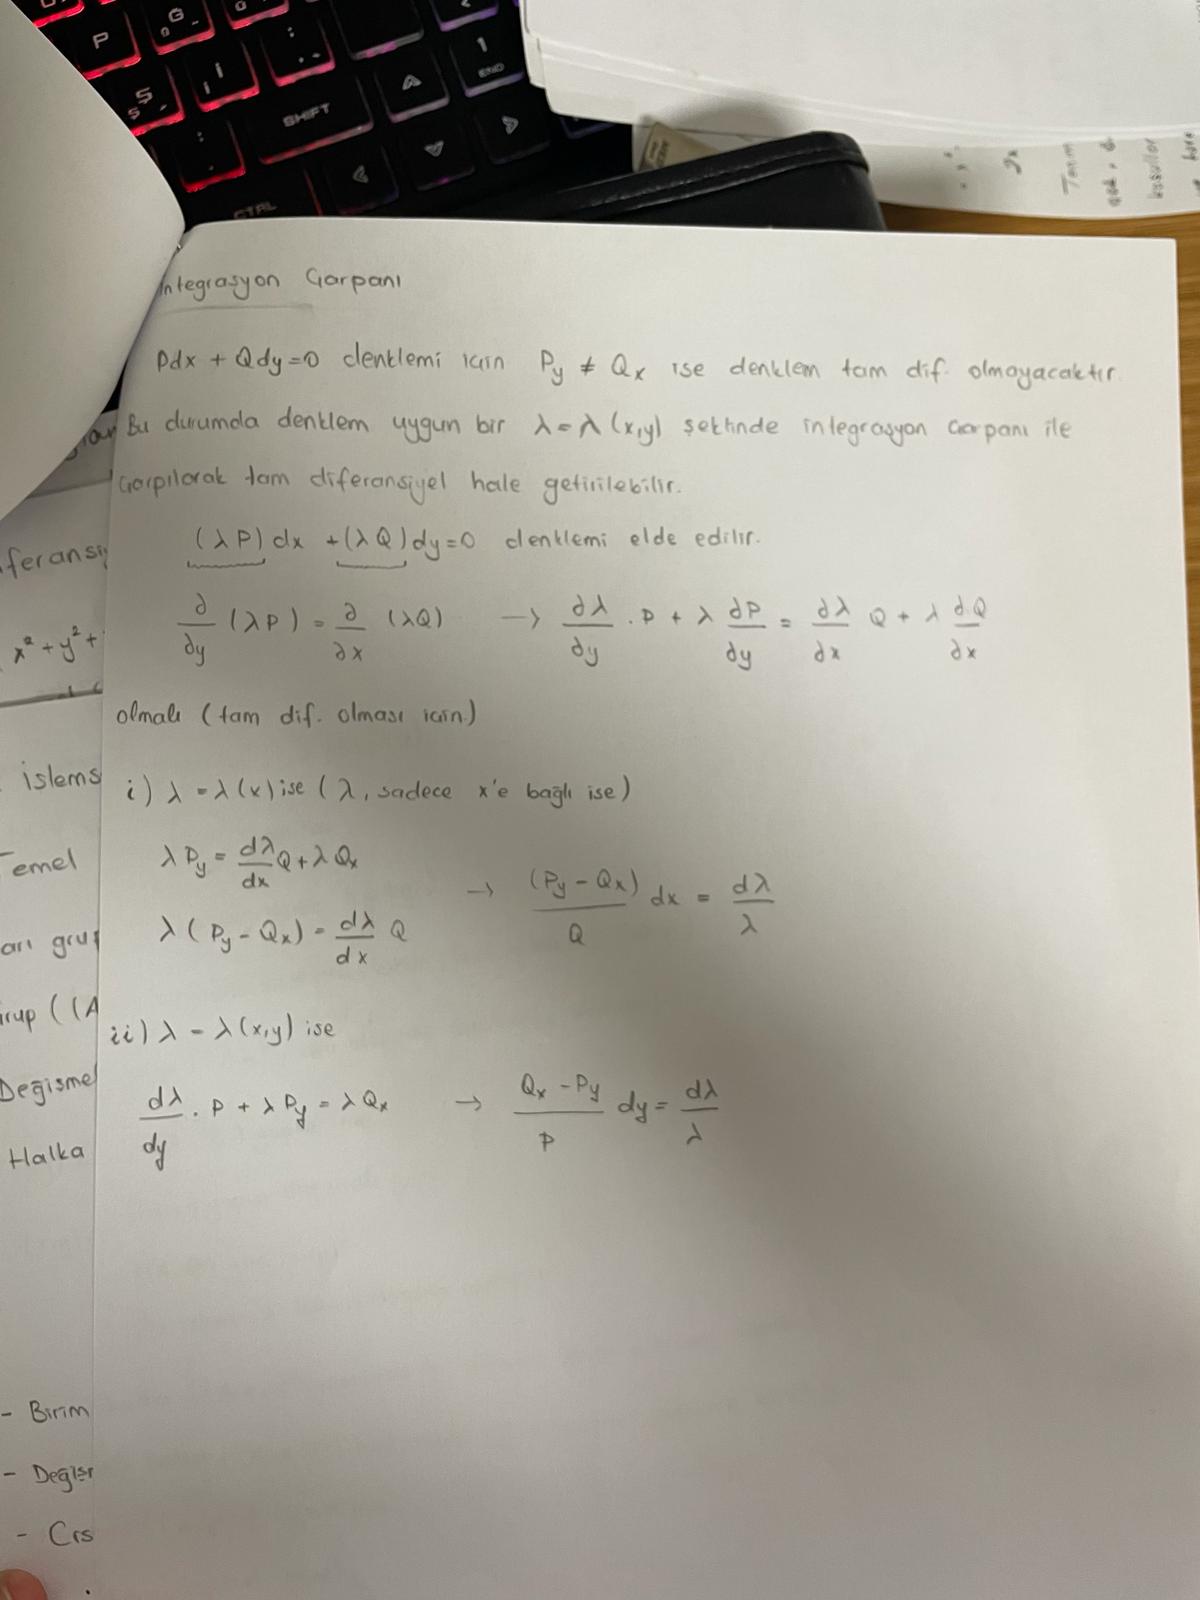 P
G
Ş
İ
SHIFT
1
END
CTRL
Tanım
İntegrasyon Çarpanı
Pdx + Qdy=0 denklemi için Py ≠ Qx ise denklem tam dif. olmayacaktır.
Bu durumda denklem uygun bir λ=λ(x,y) şeklinde integrasyon çarpanı ile
çarpılarak tam diferansiyel hale getirilebilir.
(λP)dx +(λQ)dy=0 denklemi elde edilir.
∂/∂y (λP) = ∂/∂x (λQ) → ∂λ/∂y . P + λ ∂P/∂y = ∂λ/∂x Q + λ ∂Q/∂x
olmalı (tam dif. olması için)
i) λ = λ(x) ise (λ, sadece x'e bağlı ise)
λPy = dλ/dx Q + λQx
λ(Py - Qx) = dλ/dx Q → (Py - Qx)/Q dx = dλ/λ
ii) λ = λ(x,y) ise
dλ/dy . P + λPy = λQx → Qx - Py/P dy = dλ/λ
feransiy
x² + y² +
işlems
Temel
arı grup
rup ((A
Değişme
Halka
- Birim
- Değişr